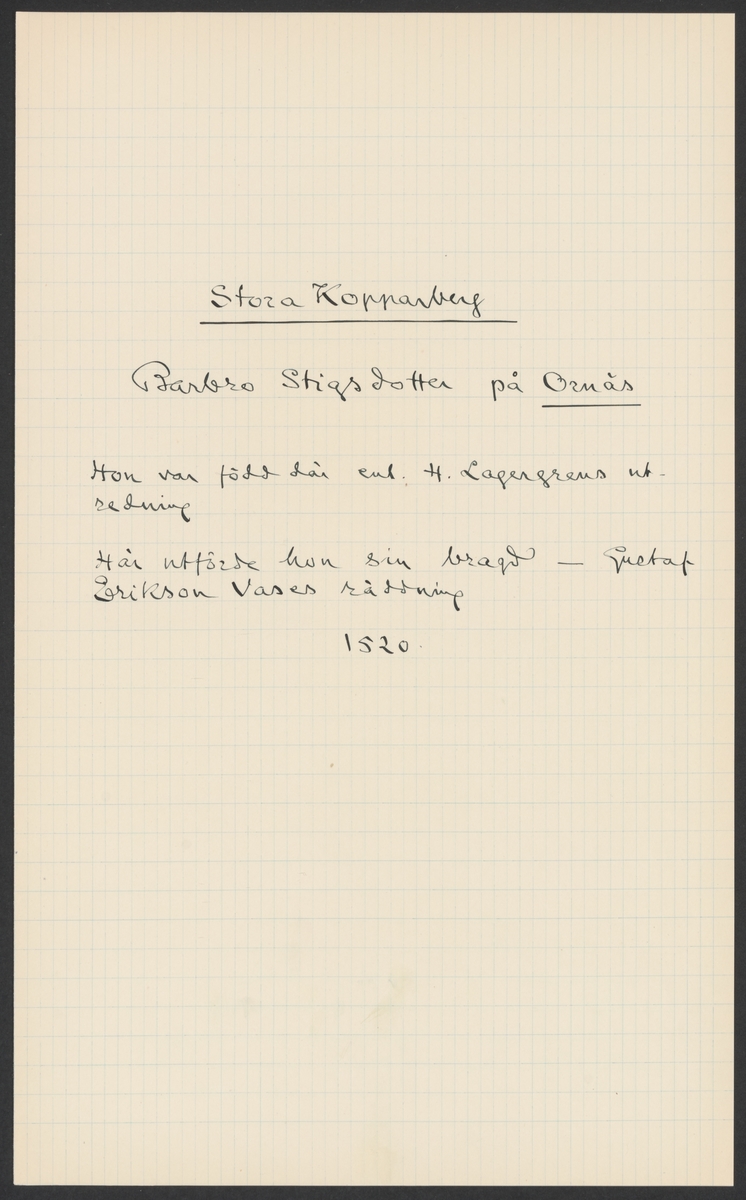 Stora Kopparberg
Barbro Stigsdotter på Ornäs
Hon var född där enl. H. Lagergrens ut-
redning
Här utförde hon sin bragd — Gustaf
Erikson Vases räddning
1520.